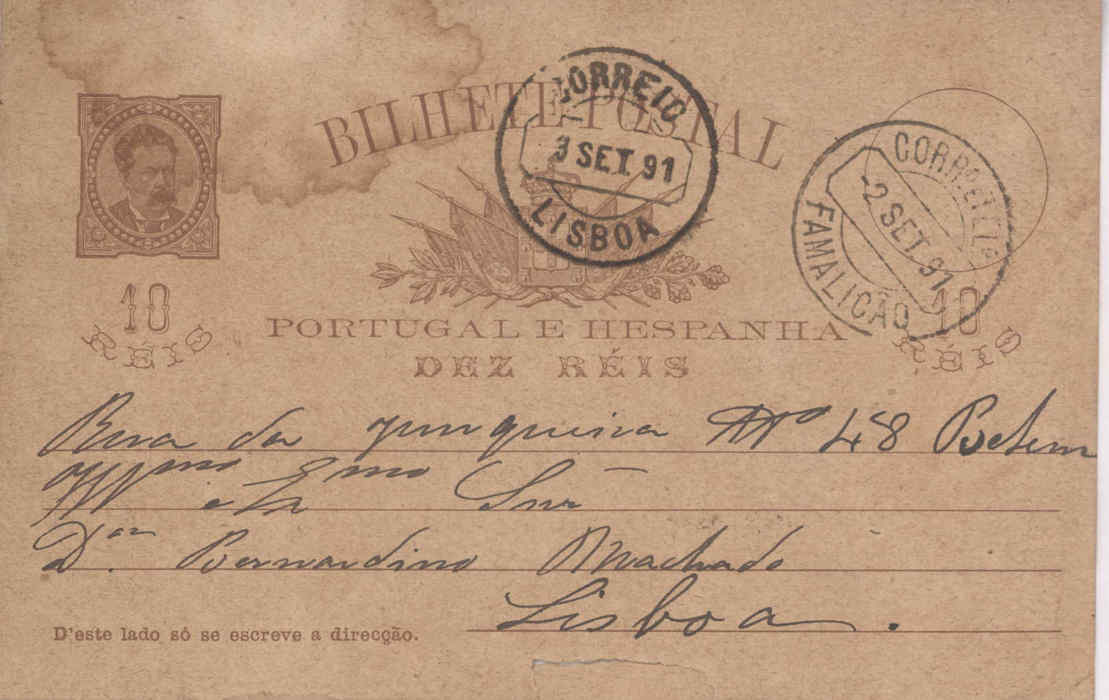 BILHETE POSTAL
CORREIO
3 SET. 91
LISBOA
2 SET. 91
FAMALICÃO
10
RÉIS
10
RÉIS
PORTUGAL E HESPANHA
DEZ RÉIS
Rua da Junqueira Nº 48 Belem
Illmo e Exmo Snr
Dor Bernardino Machado
Lisboa.
D'este lado só se escreve a direcção.